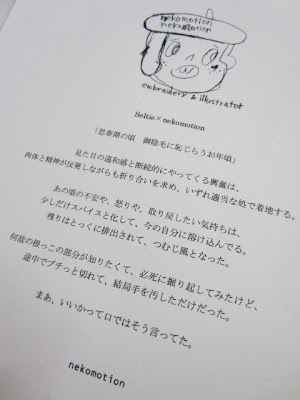 nekomotion
nekomotion
embroidery & illustrator
Seltie×nekomotion
「思春期の頃　御陰毛に恥じらうお年頃」
見た目の違和感と断続的にやってくる興奮は、
肉体と精神が反発しながらも折り合いを求め、いずれ適当な処で着地する。
あの頃の不安や、怒りや、取り戻したい気持ちは、
少しだけスパイスと化して、今の自分に溶け込んでる。
残りはとっくに排出されて、つむじ風となった。
何故の根っこの部分が知りたくて、必死に掘り起こしてみたけど、
途中でブチっと切れて、結局手を汚しただけだった。
まあ、いいかって口ではそう言ってた。
nekomotion